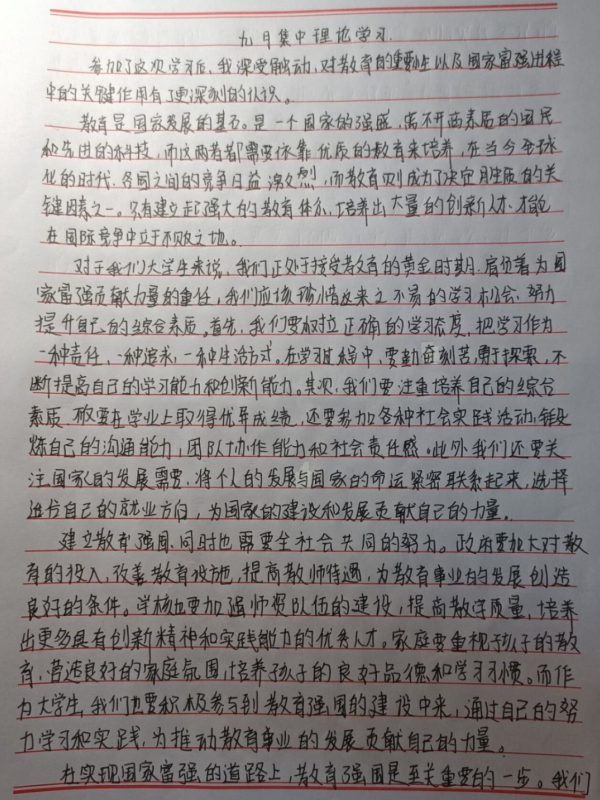 九月集中理论学习
参加了这次学习后,我深受触动,对教育的重要性以及国家富强进程
中的关键作用有了更深刻的认识。
教育是国家发展的基石。是一个国家的强盛,离不开高素质的国民
和先进的科技,而这两者都需要依靠优质的教育来培养,在当今全球
化的时代,各国之间的竞争日益激烈,而教育则成为了决定性质的关
键因素之一。只有建立起强大的教育体系,培养出大量的创新人才,才能
在国际竞争中立于不败之地。
对于我们大学生来说,我们正处于接受教育的黄金时期,肩负着为国
家富强贡献力量的重任,我们应该珍惜这来之不易的学习机会,努力
提升自己的综合素质。首先,我们要树立正确的学习态度,把学习作为
一种责任,一种追求,一种生活方式。在学习过程中,要勤奋刻苦,勇于探索,不
断提高自己的学习能力和创新能力。其次,我们要注重培养自己的综合
素质,要在学业上取得优异成绩,还要参加各种社会实践活动,锻
炼自己的沟通能力,团队协作能力和社会责任感。此外我们还要关
注国家的发展需要,将个人的发展与国家的命运紧密联系起来,选择
适合自己的就业方向,为国家的建设和发展贡献自己的力量。
建立教育强国,同时也需要全社会共同的努力。政府要加大对教
育的投入,改善教育设施,提高教师待遇,为教育事业的发展创造
良好的条件。学校也要加强师资队伍的建设,提高教学质量,培养
出更多具有创新精神和实践能力的优秀人才。家庭要重视孩子的教
育,营造良好的家庭氛围,培养孩子的良好品德和学习习惯。而作
为大学生,我们也要积极参与到教育强国的建设中来,通过自己的努
力学习和实践,为推动教育事业的发展贡献自己的力量。
在实现国家富强的道路上,教育强国是至关重要的一步。我们